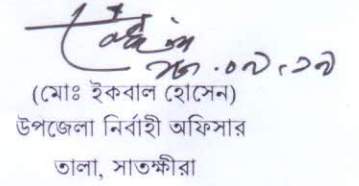 (মোঃ ইকবাল হোসেন)
উপজেলা নির্বাহী অফিসার
তালা, সাতক্ষীরা